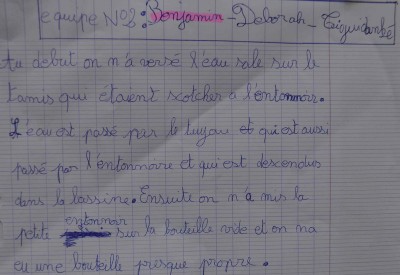 equipe N°2: Benjamin - Deborah - Tiguidanké
Au debut on n'a versé l'eau sale sur le
tamis qui étaient scotcher a l'entonnoir.
L'eau est passé par le tuyau et qui est aussi
passé par l'entonnoire et qui est descendus
dans la bassine. Ensuite on n'a mis la
petite entonnoir sur la bouteille vide et on ma
eu une bouteille presque propre.